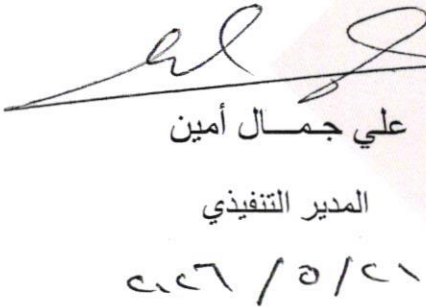 علي جمـــال أمين
المدير التنفيذي
٢٠٢٦ / ٥ / ٢١